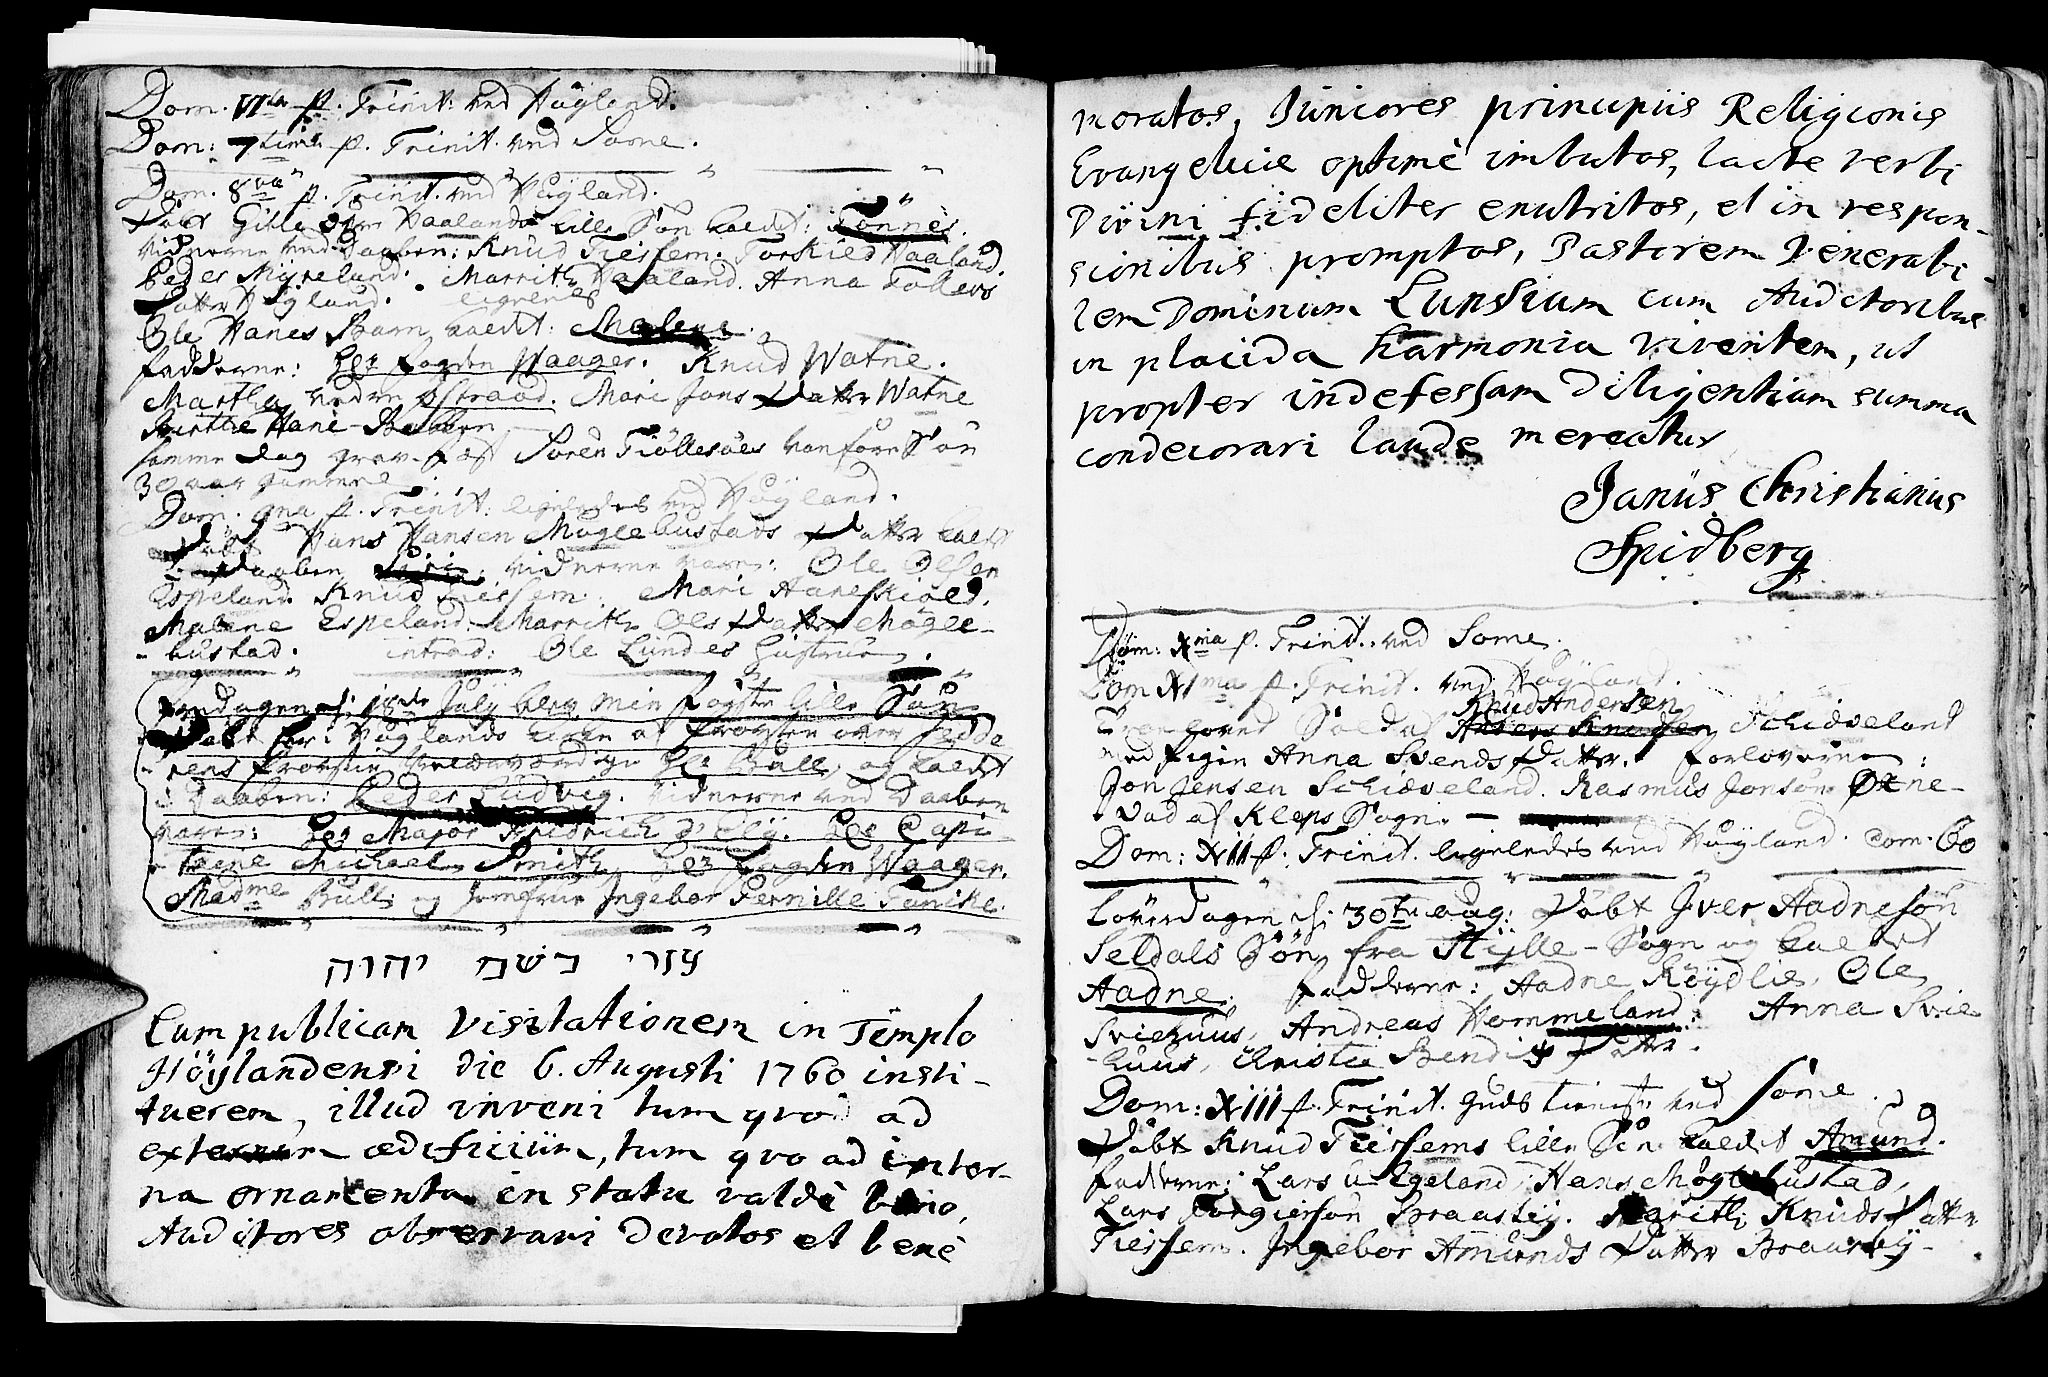 Dom. VIta p. Trinit. ved Høyland.
Dom: 7tima p. Trinit. ved Some.
Dom. 8va p. Trinit. ved Høyland.
Døbt Gitle Vaalands lille Søn kaldet: Tønnes.
vidnerne ved Daaben: Knud Tiessem. Torkild Vaaland.
Peder Myreland. Marrithe Vaaland. Anna Tollevs
Datter Høyland. ligeledes
Ole Hanes Barn kaldet: Malene.
fadderne: Hr. fogden Waager. Knud Watne.
Martha østraad. Mari Jons Datter Watne
Birthe Hane
samme Dag Søren Tiøllesøes vanføre Søn
30 aar gammel.
Dom. 9na p. Trinit. ligeledes ved Høyland.
Døbt Hans Hansen Møglebustads Datter kaldet
i Daaben Siri. vidnerne vare: Ole Olsen
Espeland. Knud Tiessem. Mari Haneskiold.
Malene Espeland. Marrithe Ols Datter Møgle-
bustad. introd: Ole Lundes Hustrue.
d: 18de July blev min fogden lille Søn
Døbt her i Høylands kirke af Provsten over Jedde-
rens Provstie Velærværdige Hr. Bull, og kaldet
i Daaben: Peder Ludvig. vidnerne ved Daaben
vare: Hr Major Fridrich Hr Capi-
taine Michael Smith, Hr Fogden Waager.
Madme Bull og Jomfrue Ingebor Pernille Fanike.
עזרי בשם יהוה
Cum publicam Visitationem in Templo
Höylandensi die 6. Augusti 1760 insti-
tuerem, illud inveni tum qvo ad
externum ædificium, tum qvo ad inter-
na ornamenta in statu valdè bono,
Auditores observavi devotos et benè
moratos, Juniores principiis Religionis
Evangelicæ optimè imbutos, lacte verbi
Divini fideliter enutritos, et in respon-
sionibus promptos, Pastorem Venerabi-
lem Dominum Lunssium cum Auditoribus
in placida harmonia viventem, ut
propter indefessam Diligentiam summa
condecorari laude mereatur
Janus Christianus
Spidberg
Dom: Xma p. Trinit. ved Some.
Dom XIma p. Trinit. ved Høyland.
Knud Andersen
Troeloved Soldat Anders Knudsen Schiæveland
med Pigen Anna Svends Datter. Forloverne:
Jon Jensen Schiæveland. Rasmus Jonsøn Ørne-
vad af Kleps Sogn.
Dom: XII p. Trinit. ligeledes ved Høyland. Com. 60
Løverdagen d: 30te aug: Døbt Iver Aadnesøn
Seldals Søn fra Sogn og kaldet
Aadne. Fadderne: Aadne Røydlie, Ole
Sviehuus, Andreas Hommeland. Anna Svie-
huus, Christi Bendix Datter.
Dom: XIII p. Trinit. Gudstieniste ved Some.
Døbt Knud Tiessems lille Søn kaldet Amund.
fadderne: Lars Egeland, Hans Møglebustad,
Lars Torgiersøn Braasteÿ. Marithe Knuds Datter
Tiessem. Ingebor Amunds Datter Braasteÿ.